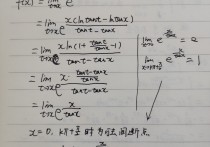 f(x) = lim t→x e
= lim t→x x(ln tant - ln tanx) / tant - tanx
= lim t→x x ln(1 + tant/tanx - 1) / tant - tanx
= lim t→x x · tant-tanx/tanx / tant-tanx
= lim t→x e x/tanx
x=0, kπ+π/2 时 为可去间断点
lim x→0 e x/tanx = e
lim x→kπ+π/2 e x/tanx = 1